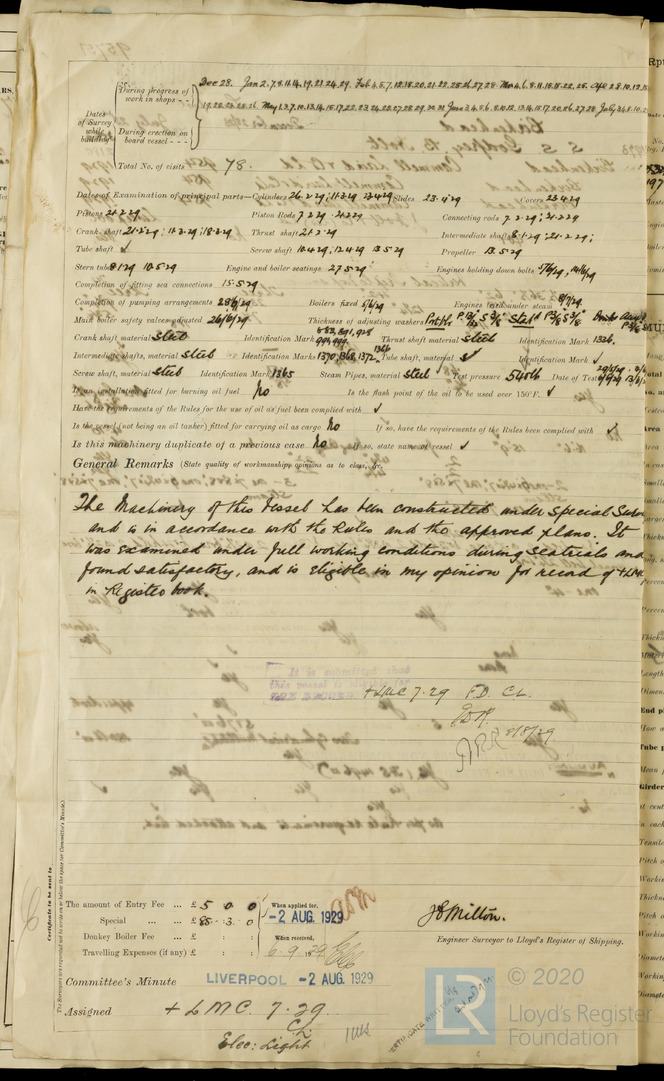 During progress of work in shops - - Dec 28. Jan 2.7.8.11.14.19.21.24.29. Feb 4.5.7.12.18.20.21.22.25.26.27.28 Mar 4.6.8.11.15.18.22.25.
During erection on board vessel - - - May 1.3.7.10.13.14.15.17.22.23.24.25.27.28.29.30.31 June 3.4.5.6.8.10.12.13.14.15.17.20.26.27.28 July 3.4.8.10.
Dates of Survey while building
Total No. of visits 78.
Dates of Examination of principal parts—Cylinders 26.2.29, 11.3.29 Slides 23.4.29 Covers 23.4.29
Pistons 21.2.29 Piston Rods 7.2.29. 21.2.29 Connecting rods 7.2.29; 21.2.29
Crank shaft 21.2.29; 11.3.29; 18.3.29 Thrust shaft 21.2.29 Intermediate shafts 8.1.29; 21.2.29;
Tube shaft ✓ Screw shaft 10.4.29, 12.4.29 13.5.29 Propeller 13.5.29
Stern tube 8.1.29 10.5.29 Engine and boiler seatings 27.5.29 Engines holding down bolts 7/6/29, 14/6/29
Completion of fitting sea connections 15.5.29
Completion of pumping arrangements 28/6/29 Boilers fixed 5/6/29 Engines tried under steam 8/7/29
Main boiler safety valves adjusted 26/6/29 Thickness of adjusting washers
Crank shaft material Steel Identification Mark Thrust shaft material Steel Identification Mark 1326.
Intermediate shafts, material Steel Identification Marks 1370, 1368, 1372, 1366 Tube shaft, material ✓ Identification Mark ✓
Screw shaft, material Steel Identification Mark 1365 Steam Pipes, material Steel Test pressure 540 lb Date of Test
Is an installation fitted for burning oil fuel No Is the flash point of the oil to be used over 150°F. ✓
Have the requirements of the Rules for the use of oil as fuel been complied with ✓
Is the vessel (not being an oil tanker) fitted for carrying oil as cargo No If so, have the requirements of the Rules been complied with ✓
Is this machinery duplicate of a previous case No If so, state name of vessel ✓
General Remarks (State quality of workmanship, opinions as to class, &c.
The Machinery of this Vessel has been constructed under Special
and is in accordance with the Rules and the approved plans. It
was examined under full working conditions during sea trials and
found satisfactory, and is eligible in my opinion for record of +LMC
in Register book.
It is submitted that
this vessel is eligible for
THE RECORD +LMC 7.29 F.D. CL.
8/8/29
Certificate to be sent to
The amount of Entry Fee ... £ 5 0 0 When applied for,
Special ... £ 85 . 3 . 0 -2 AUG. 1929
Donkey Boiler Fee ... £ : : When received,
Travelling Expenses (if any) £ : : 6.9.29
J.B. Milton.
Engineer Surveyor to Lloyd's Register of Shipping.
Committee's Minute LIVERPOOL -2 AUG. 1929
Assigned + LMC. 7.29
CL.
Elec: Light
CERTIFICATE WRITTEN
LR © 2020
Lloyd's Register
Foundation